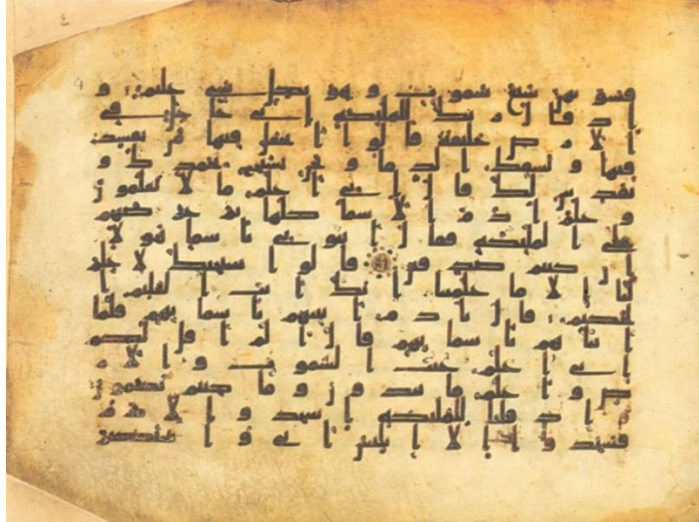 فسويهن سبع سموت وهو بكل شيء عليم و
اذ قال ربك للمليكة اني جاعل في
الارض خليفة قالوا اتجعل فيها من يفسد
فيها ويسفك الدما ونحن نسبح بحمدك و
نقدس لك قال اني اعلم ما لا تعلمون
وعلم ادم الاسما كلها ثم عرضهم
على المليكة فقال انبوني باسما هولا
ان كنتم صدقين قالوا سبحنك لا علم
لنا الا ما علمتنا انك انت العليم ا
لحكيم قال يادم انبيهم باسمايهم فلما
انباهم باسمايهم قال الم اقل لكم
اني اعلم غيب السموت والار
ض واعلم ما تبدون وما كنتم تكتمون
واذ قلنا للمليكة اسجدوا لادم
فسجدوا الا ابليس ابى وا ستكبر